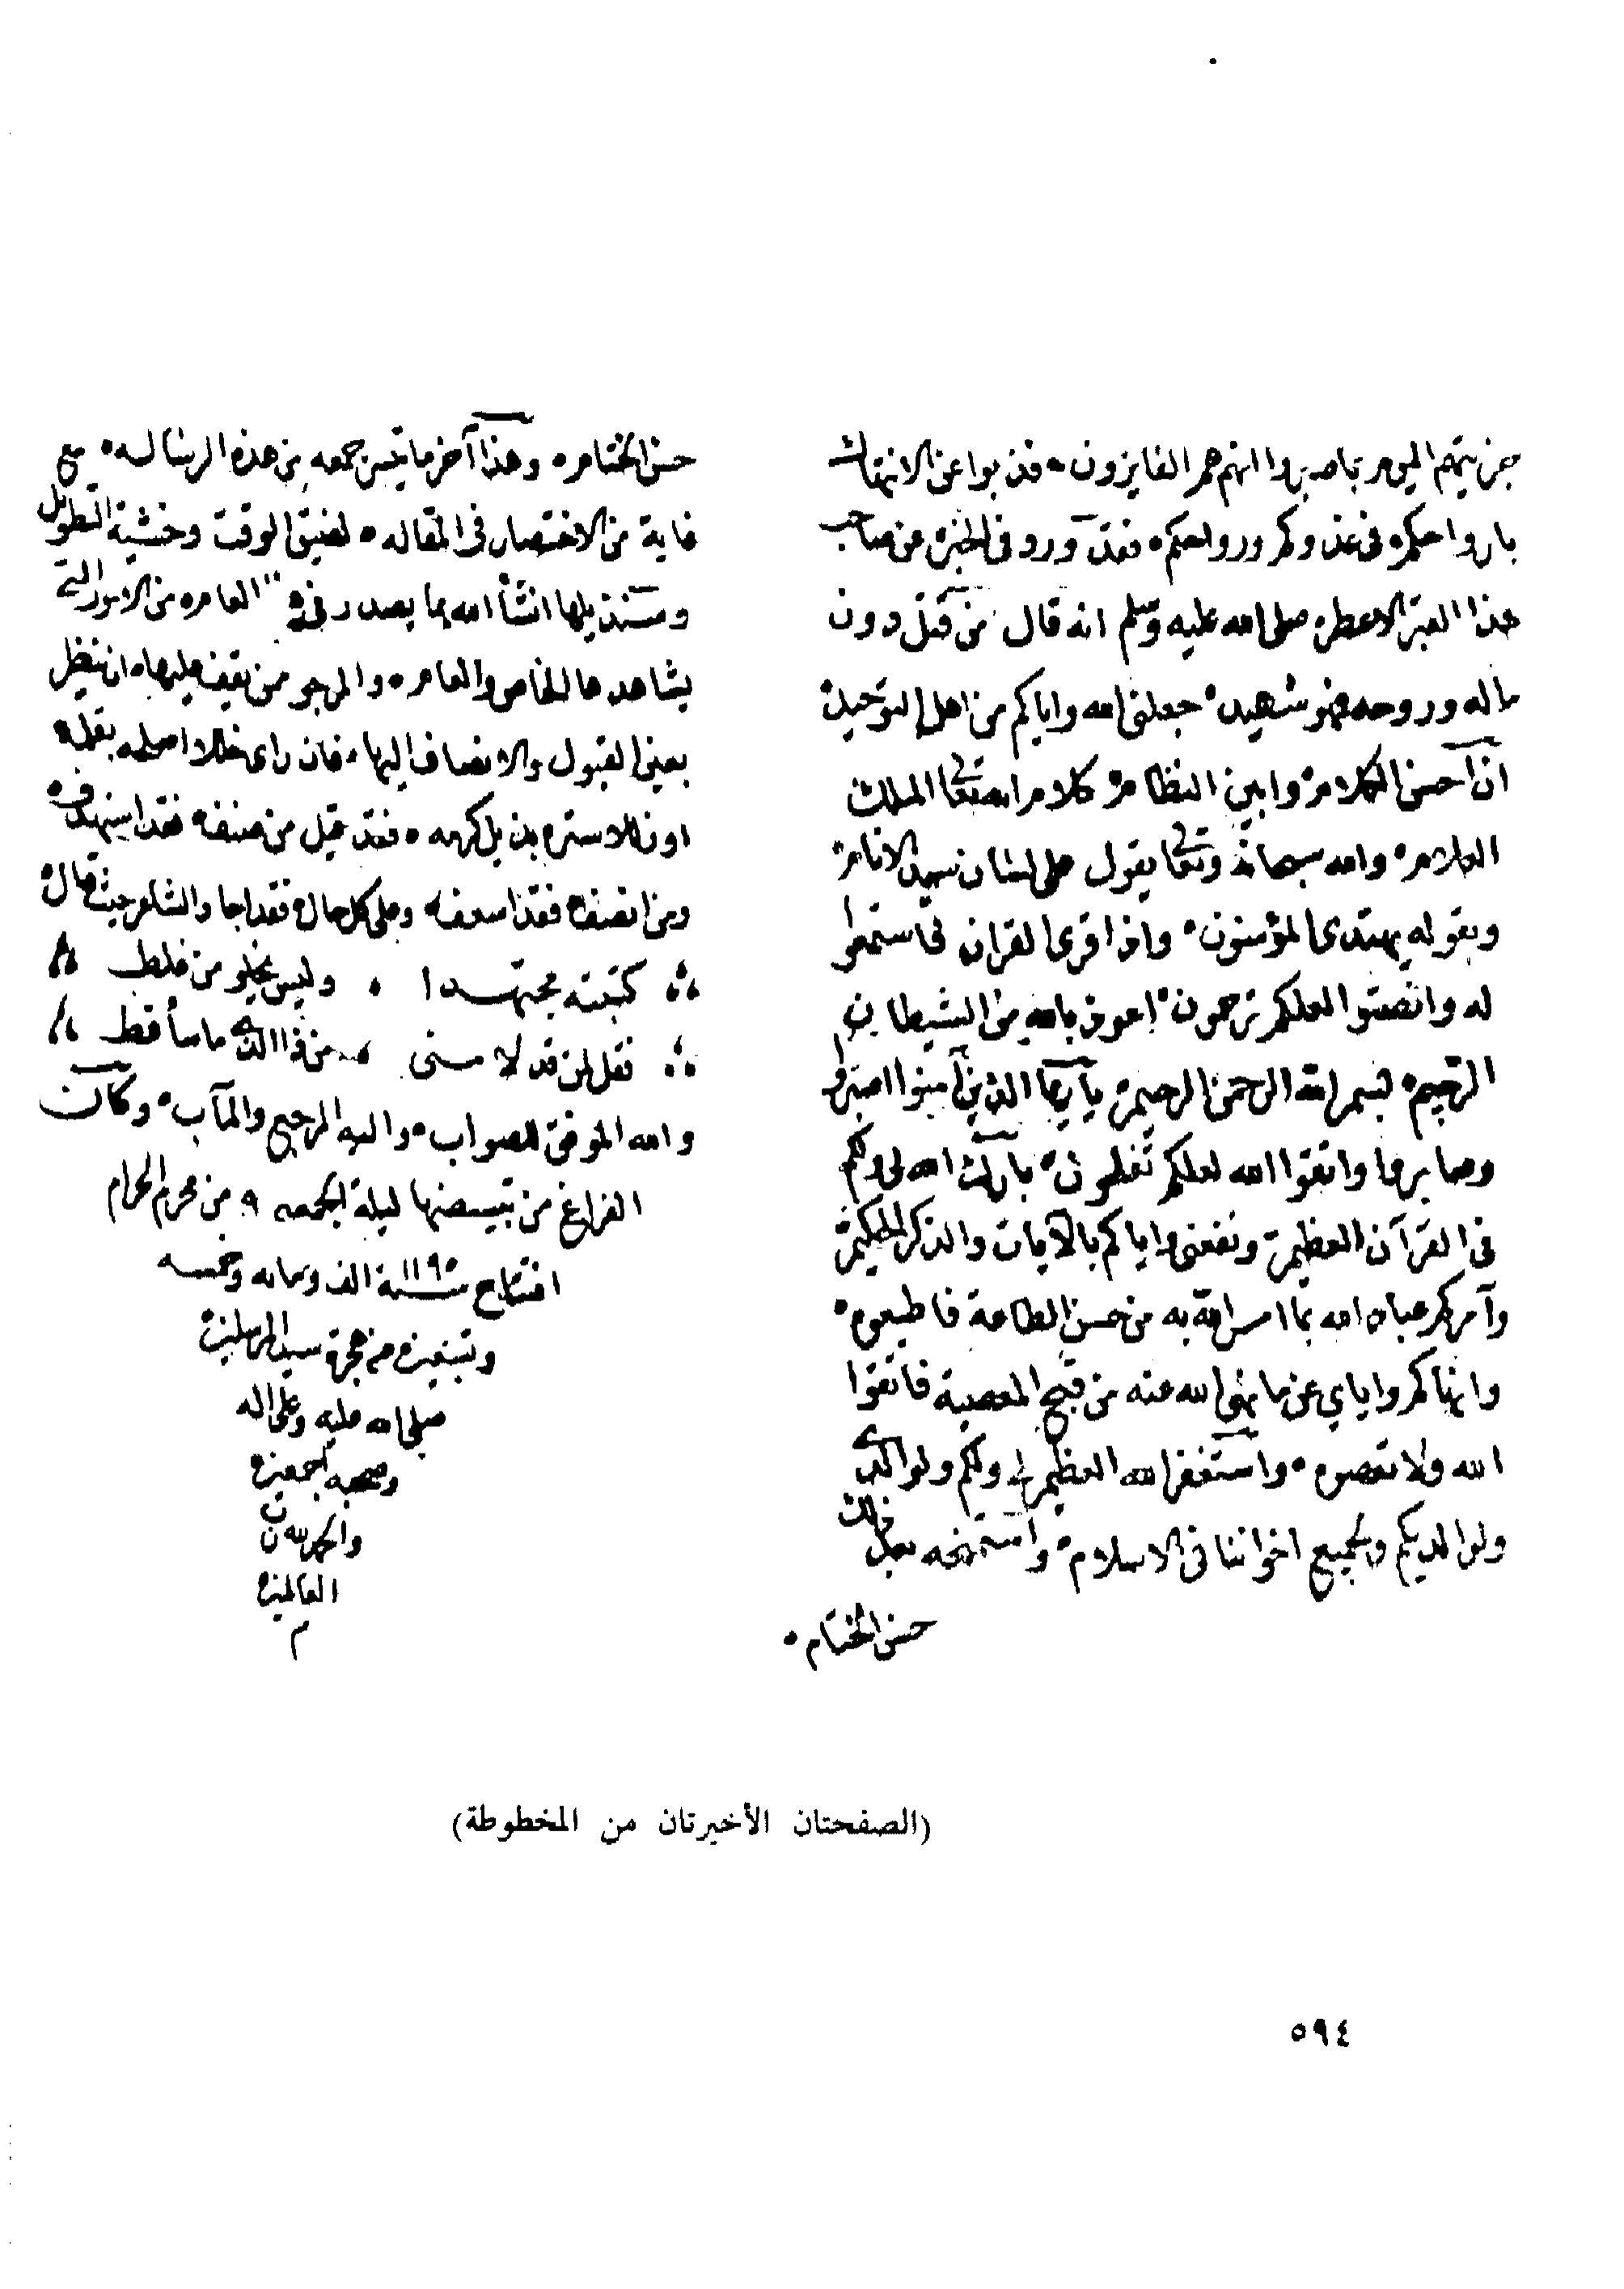 جزيتهم اليوم بما صبروا انهم هم الفايزون، فذبوا عن الانتهاك
بارواحكم في غدوكم ورواحكم، فقد ورد في الخبر عن صاحب
هذا القبر الاعطر صلى الله عليه وسلم انه قال من قتل دون
ماله وروحه فهو شهيد، جعلني الله واياكم من اهل التوحيد
ان احسن الكلام، وابين النظام، كلام الله تعالى الملك
العلام، والله سبحانه وتعالى يقول على لسان سيد الانام
وبقوله يهتدي المؤمنون، واذا قرى القران فاستمعوا
له وانصتوا لعلكم ترحمون، اعوذ بالله من الشيطان
الرجيم، بسم الله الرحمن الرحيم، يا ايها الذين آمنوا اصبروا
وصابروا واتقوا الله لعلكم تفلحون، بارك الله لي ولكم
في القرآن العظيم، ونفعني واياكم بالآيات والذكر الحكيم
وآمركم عباد الله بما امر الله به من حسن الطاعة فاطيعوه،
وانهاكم واياي عن ما نهى الله عنه من قبح المعصية فاتقوا
الله ولا تعصوه، واستغفر الله العظيم لي ولكم ولوالدي
ولوالديكم ولجميع اخواننا في الاسلام، واستمنحه بعد ذلك
حسن الختام،
حسن الختام، وهذا آخر ما تيسر جمعه من هذه الرساله، مع
غاية من الاختصار في المقاله، لضيق الوقت وخشية التطويل
وسنذيلها انشأ الله بما يصدر في هذه العام من الامور التي
يشاهدها الخاص والعام، والمرجو ممن يقف عليها، ان ينظر
بعين القبول والانصاف اليها، فان راى خللا اصلحه بقلمه
او زللا ستره بذيل كرمه، فقد قيل من صنف فقد استهدف
ومن انصف فقد اسعف، وعلى كل حال فقد اجاد الشاعر حيث قال
كتبته مجتهدا ، وليس يخلو من غلط
فقل لمن قد لامني ، من ذا الذي ما سأ قط
والله الموفق للصواب، واليه المرجع والمآب، وكان
الفراغ من تبييضها ليلة الجمعه ٩ من محرم الحرام
افتتاح سنة ١١٩٥ الف ومايه وخمسه
وتسعين من هجرة سيد المرسلين
صلى الله عليه وعلى اله
وصحبه اجمعين
والحمد لله رب
العالمين
م
(الصفحتان الأخيرتان من المخطوطة)
٥٩٤